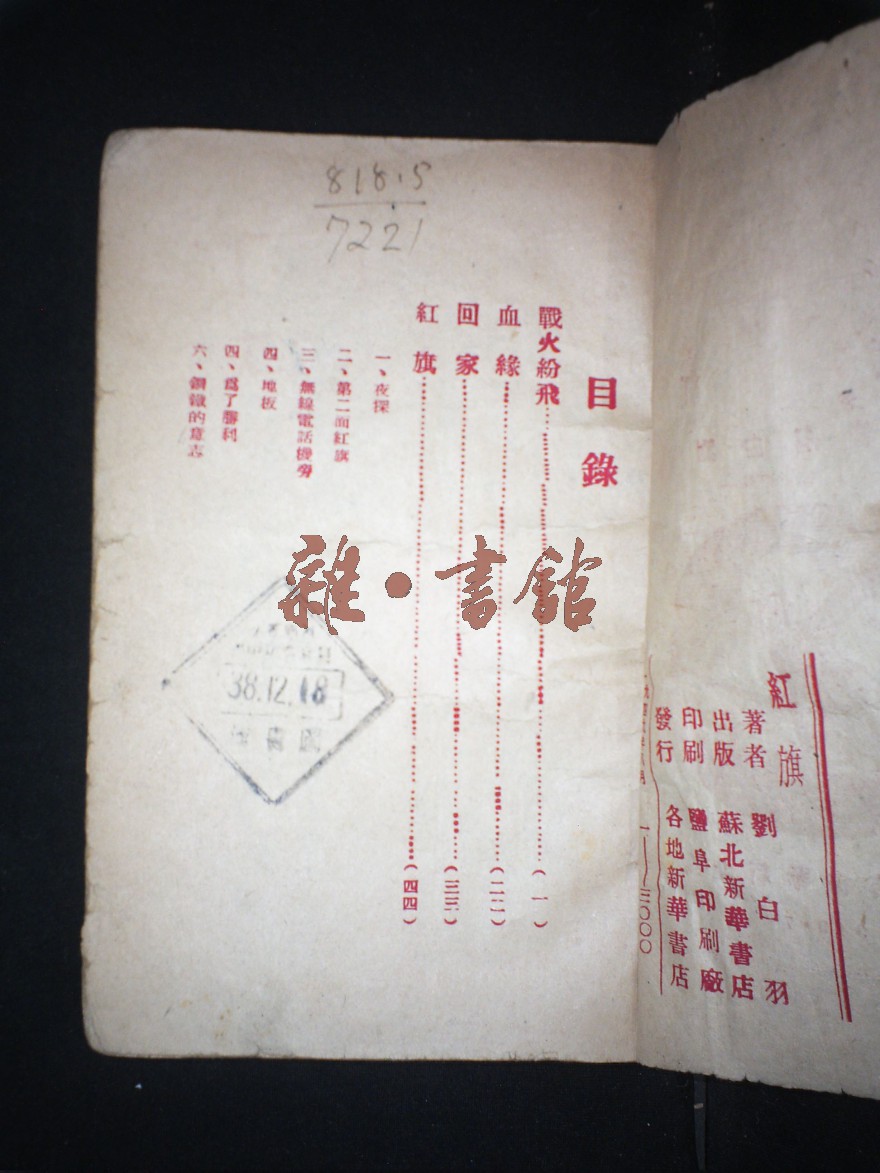 紅旗
著者 劉白羽
出版 蘇北新華書店
印刷 鹽阜印刷廠
發行 各地新華書店
一——三〇〇〇
目錄
戰火紛飛……(一)
血緣……(二二)
回家……(三三)
紅旗……(四四)
一、夜探
二、第二面紅旗
三、無線電話機旁
四、地板
四、爲了勝利
六、鋼鐵的意志
818.5
7221
38.12.18
雜·書館